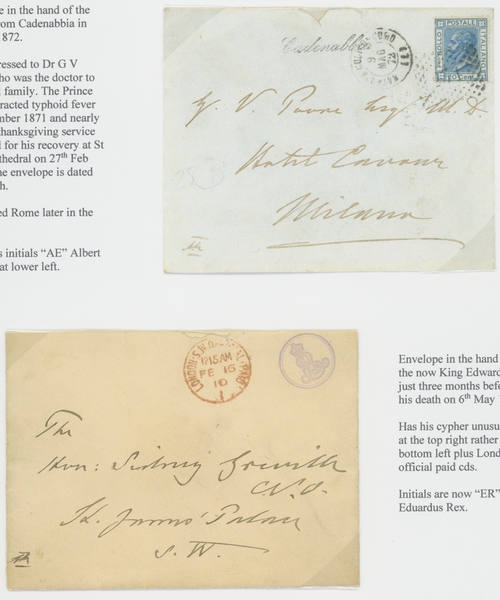 e in the hand of the
rom Cadenabbia in
1872.
ressed to Dr G V
ho was the doctor to
l family. The Prince
tracted typhoid fever
mber 1871 and nearly
thanksgiving service
d for his recovery at St
thedral on 27th Feb
he envelope is dated
h.
ed Rome later in the
s initials "AE" Albert
at lower left.
Cadenabbia
9
MAG
72
POSTALE
ITALIANO
G. V. Poore Esq M.D.
Hotel Cavour
Milano
LONDON.S.W. OFFICIAL PAID
12.15AM
FE 16
10
The
Hon: Sidney Greville
C.V.O.
St. James' Palace
S.W.
Envelope in the hand
the now King Edward
just three months befo
his death on 6th May
Has his cypher unusu
at the top right rather
bottom left plus Lond
official paid cds.
Initials are now "ER"
Eduardus Rex.